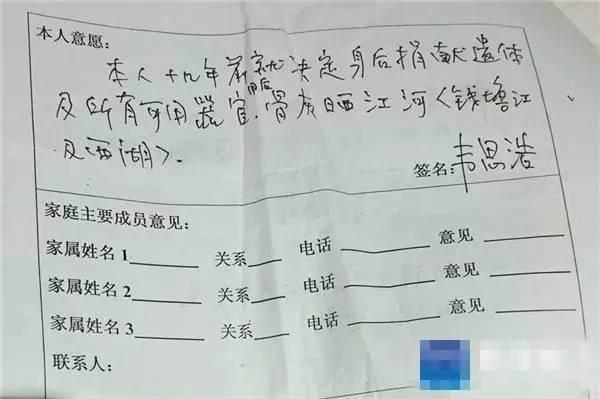 本人意愿：
本人十九年前就决定身后捐献遗体
及所有可用器官.用后骨灰晒江河〈钱塘江
及西湖〉.
签名：韦思浩
家庭主要成员意见：
家属姓名1______ 关系____ 电话______ 意见______
家属姓名2______ 关系____ 电话______ 意见______
家属姓名3______ 关系____ 电话______ 意见______
联系人：